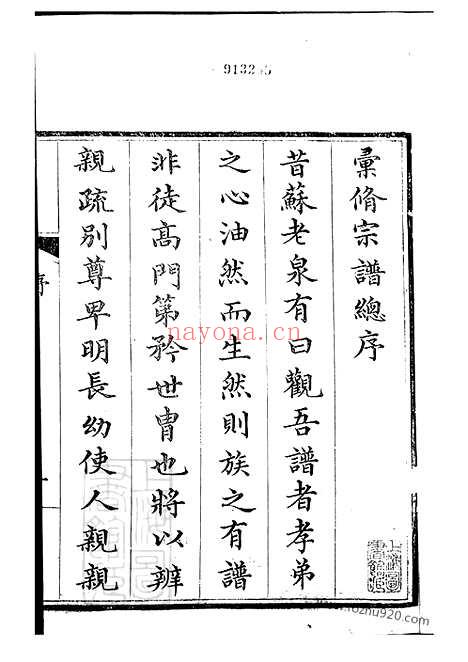 913235
彙脩宗譜總序
昔蘇老泉有曰觀吾譜者孝弟
之心油然而生然則族之有譜
非徒高門第矜世胄也將以辨
親疏別尊卑明長幼使人親親
序
一
nayona.cn
www.fozhu920.com